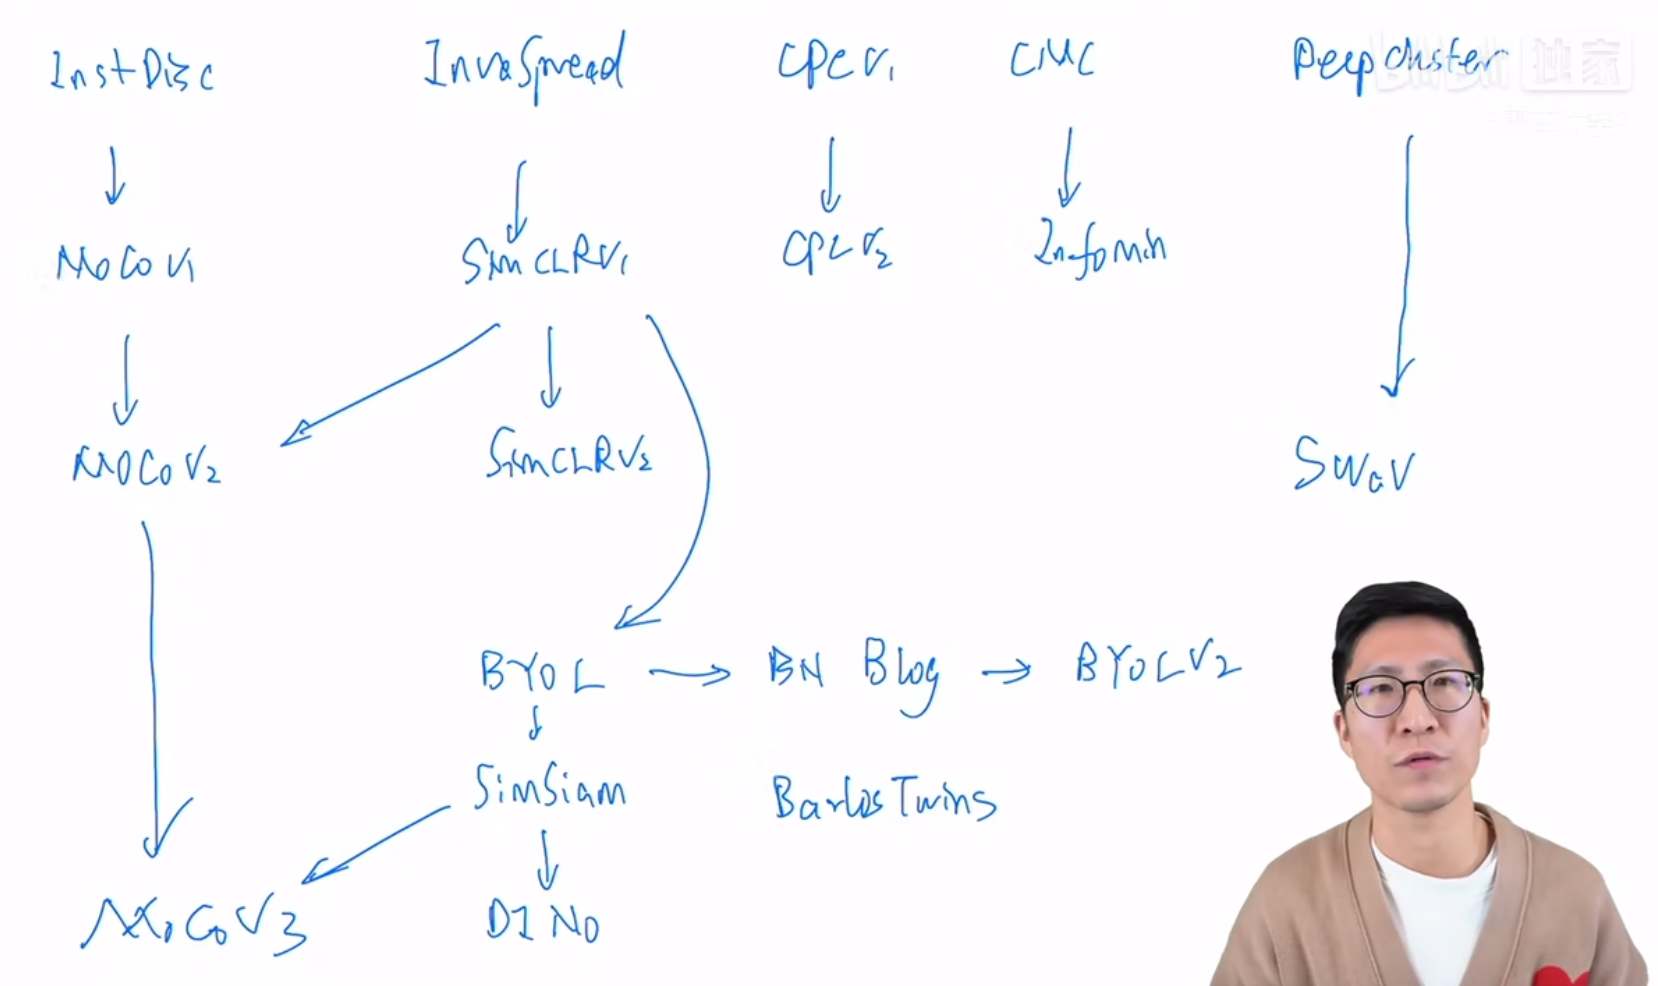 InstDisc InvaSpread CPCV1 CMC Deepcluster
bilibili 独家
MoCoV1 SimCLRV1 CPCV2 Infomin
MoCoV2 SimCLRV2 SWaV
BYOL BN Blog BYOLV2
SimSiam BarlosTwins
MoCoV3 DINO